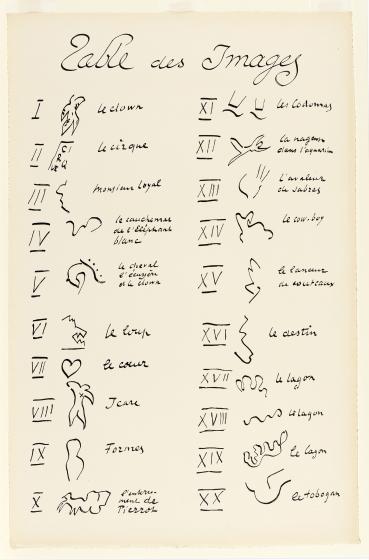 Table des Images
I le clown
II le cirque
III Monsieur Loyal
IV le cauchemar
de l'éléphant
blanc
V le cheval
l'écuyère
et le clown
VI le loup
VII le cœur
VIII Icare
IX Formes
X l'enterre-
ment de
Pierrot
XI les Codomas
XII la nageuse
dans l'aquarium
XIII l'avaleur
de sabres
XIV le cow-boy
XV le lanceur
de couteaux
XVI le destin
XVII le lagon
XVIII le lagon
XIX le lagon
XX le tobogan